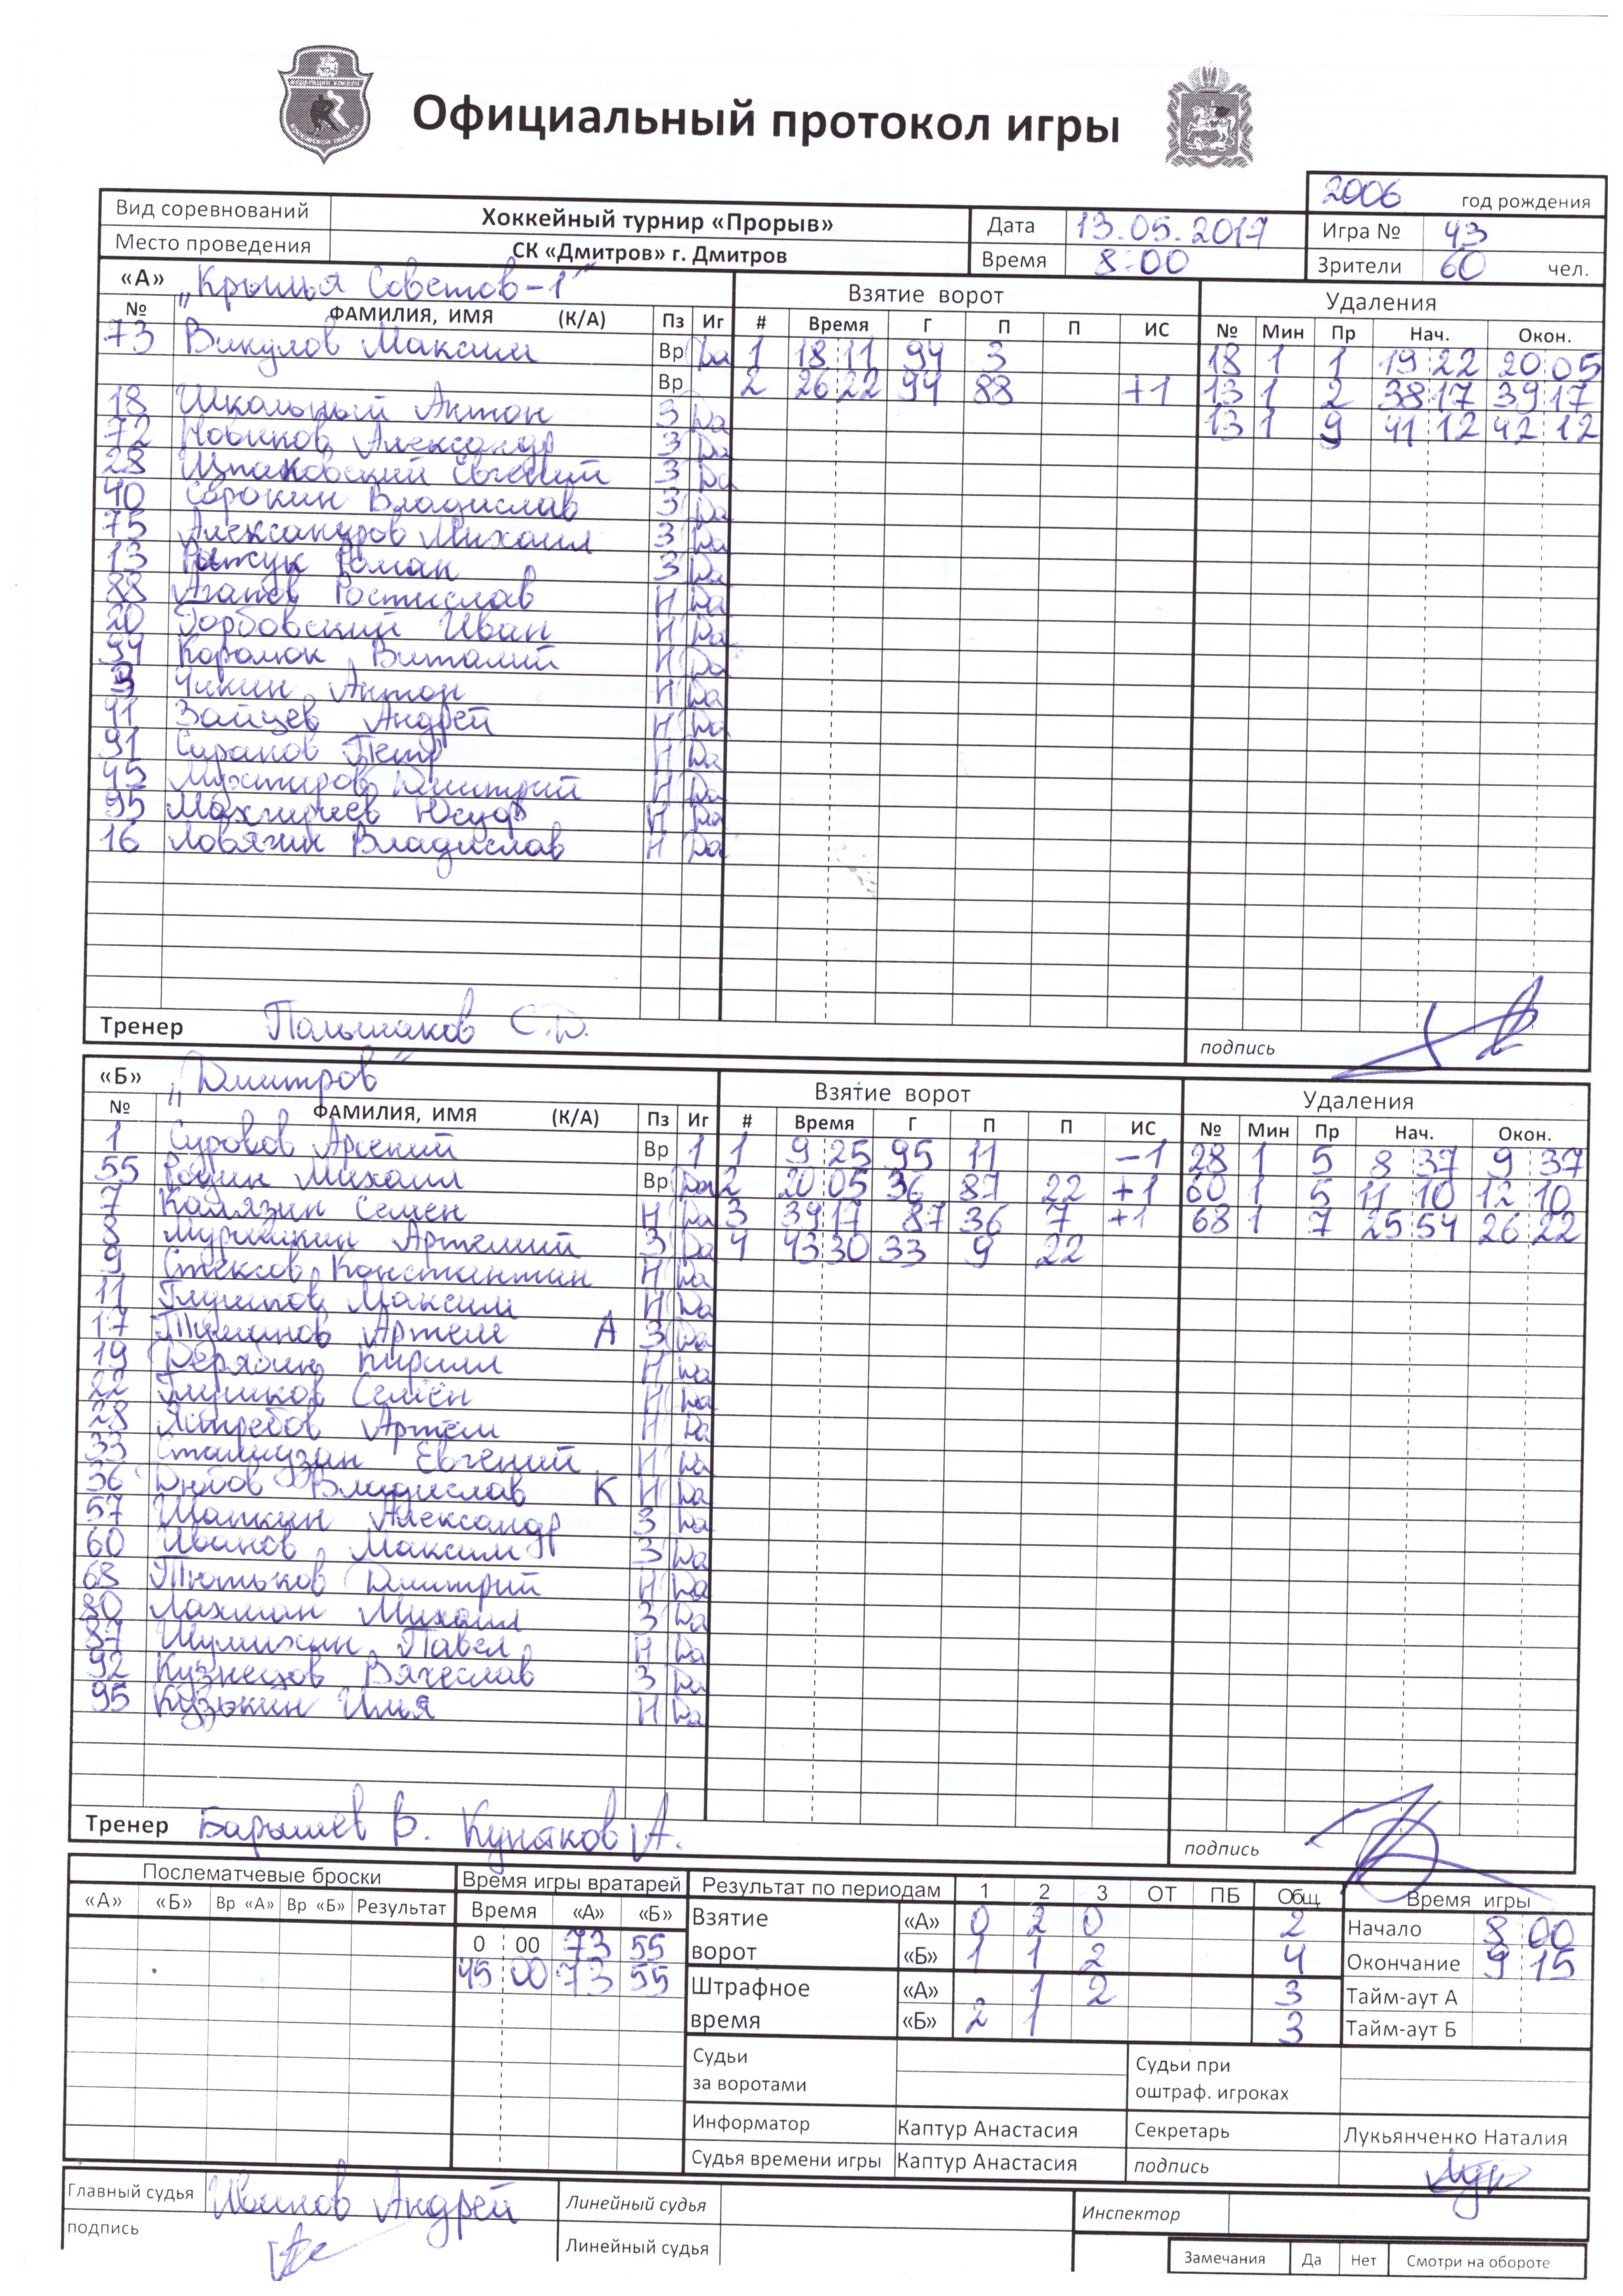 Официальный протокол игры
2006 год рождения
Вид соревнований Хоккейный турнир «Прорыв» Дата 13.05.2017 Игра № 43
Место проведения СК «Дмитров» г. Дмитров Время 8:00 Зрители 60 чел.
«А» „Крылья Советов-1" Взятие ворот Удаления
№ ФАМИЛИЯ, ИМЯ (К/А) Пз Иг # Время Г П П ИС № Мин Пр Нач. Окон.
73 Викулов Максим Вр Да 1 18 11 94 3 18 1 1 19 22 20 05
Вр 2 26 22 94 88 +1 13 1 2 38 17 39 17
18 Школьный Антон З Да 13 1 9 41 12 42 12
72 Новиков Александр З Да
28 Шпаковский Евгений З Да
40 Сорокин Владислав З Да
75 Александров Михаил З Да
13 Роман З Да
88 Агапов Ростислав Н Да
20 Горбовский Иван Н Да
94 Королюк Виталий Н Да
3 Чикин Антон Н Да
Зайцев Андрей Н Да
91 Саранов Петр Н Да
45 Мухтаров Дмитрий Н Да
95 Юсуф Н Да
16 Ловягин Владислав Н Да
Тренер С.Ю.
подпись
«Б» „Дмитров" Взятие ворот Удаления
№ ФАМИЛИЯ, ИМЯ (К/А) Пз Иг # Время Г П П ИС № Мин Пр Нач. Окон.
1 Суровов Арсений Вр 1 1 9 25 95 11 -1 28 1 5 8 37 9 37
55 Родин Михаил Вр Да 2 20 05 36 87 22 +1 60 1 5 11 10 12 10
7 Калязин Семен Н Да 3 39 17 87 36 7 +1 68 1 7 25 54 26 22
8 Мурашкин Артемий З Да 4 43 30 33 9 22
9 Стексов Константин Н Да
11 Максим Н Да
17 Туманов Артем А З Да
19 Дерябин Кирилл Н Да
22 Глушков Семён Н Да
28 Ястребов Артём Н Да
33 Евгений Н Да
36 Дюбов Владислав К Н Да
57 Шапкин Александр З Да
60 Иванов Максим З Да
68 Тютьков Дмитрий Н Да
80 Лахман Михаил З Да
87 Шумихин Павел Н Да
92 Кузнецов Вячеслав З Да
95 Кузькин Илья Н Да
Тренер Барышев В. Кунаков А.
подпись
Послематчевые броски Время игры вратарей Результат по периодам 1 2 3 ОТ ПБ Общ. Время игры
«А» «Б» Вр «А» Вр «Б» Результат Время «А» «Б» Взятие ворот «А» 0 2 0 2 Начало 8 00
0 00 73 55 «Б» 1 1 2 4 Окончание 9 15
45 00 73 55 Штрафное время «А» 1 2 3 Тайм-аут А
«Б» 2 1 3 Тайм-аут Б
Судьи за воротами Судьи при оштраф. игроках
Информатор Каптур Анастасия Секретарь Лукьянченко Наталия
Судья времени игры Каптур Анастасия подпись
Главный судья Иванов Андрей Линейный судья Инспектор
подпись Линейный судья
Замечания Да Нет Смотри на обороте